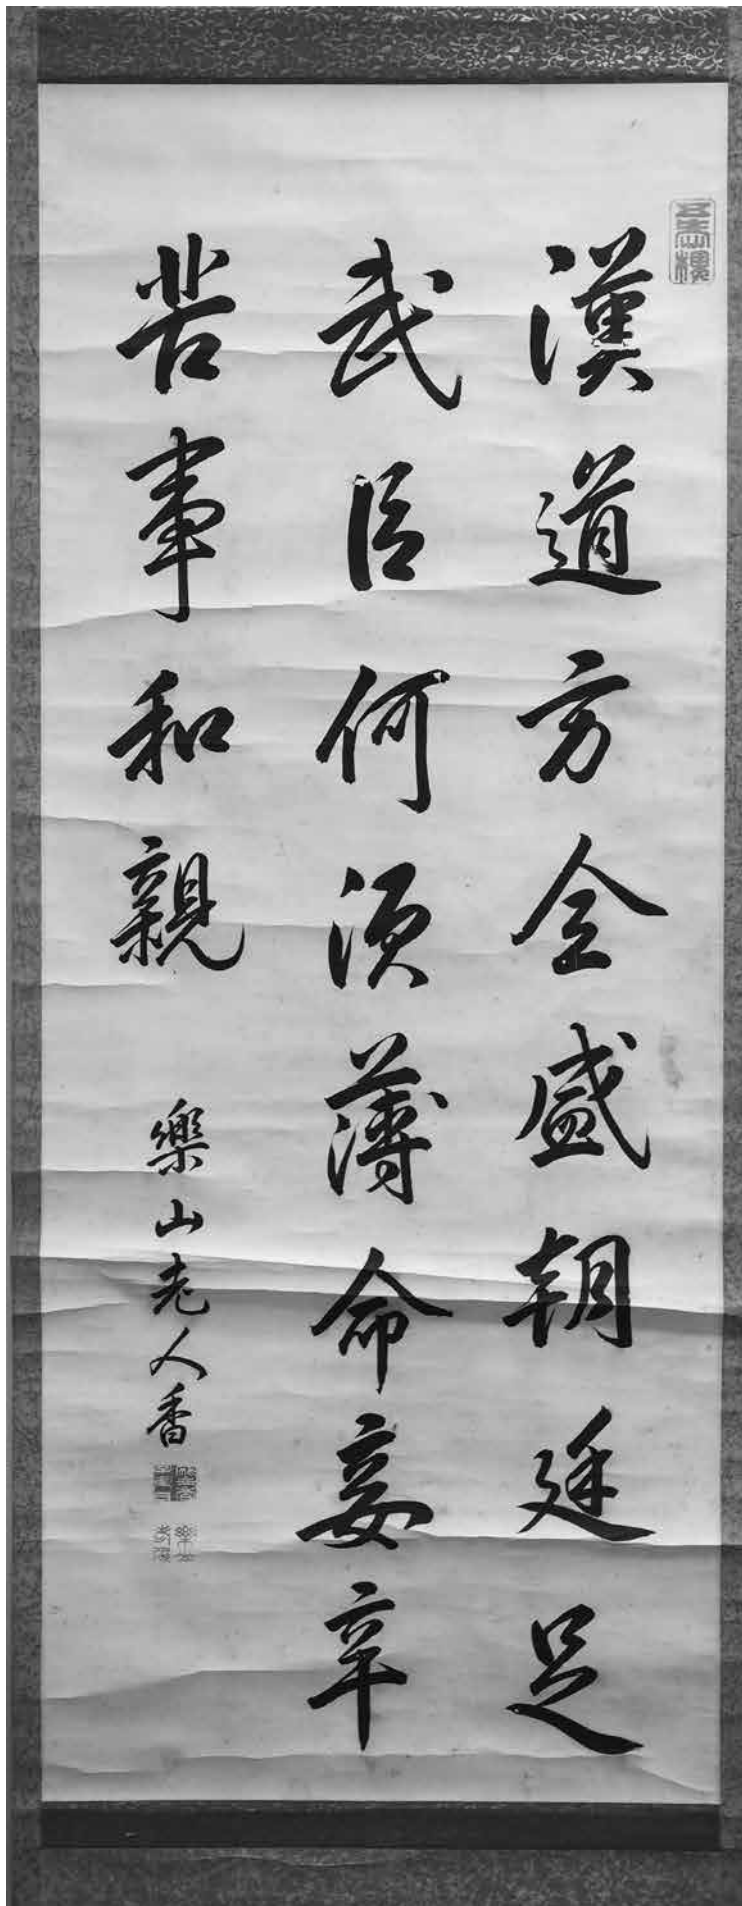 漢道方全盛朝廷足
武臣何須薄命妾辛
苦事和親
樂山老人香